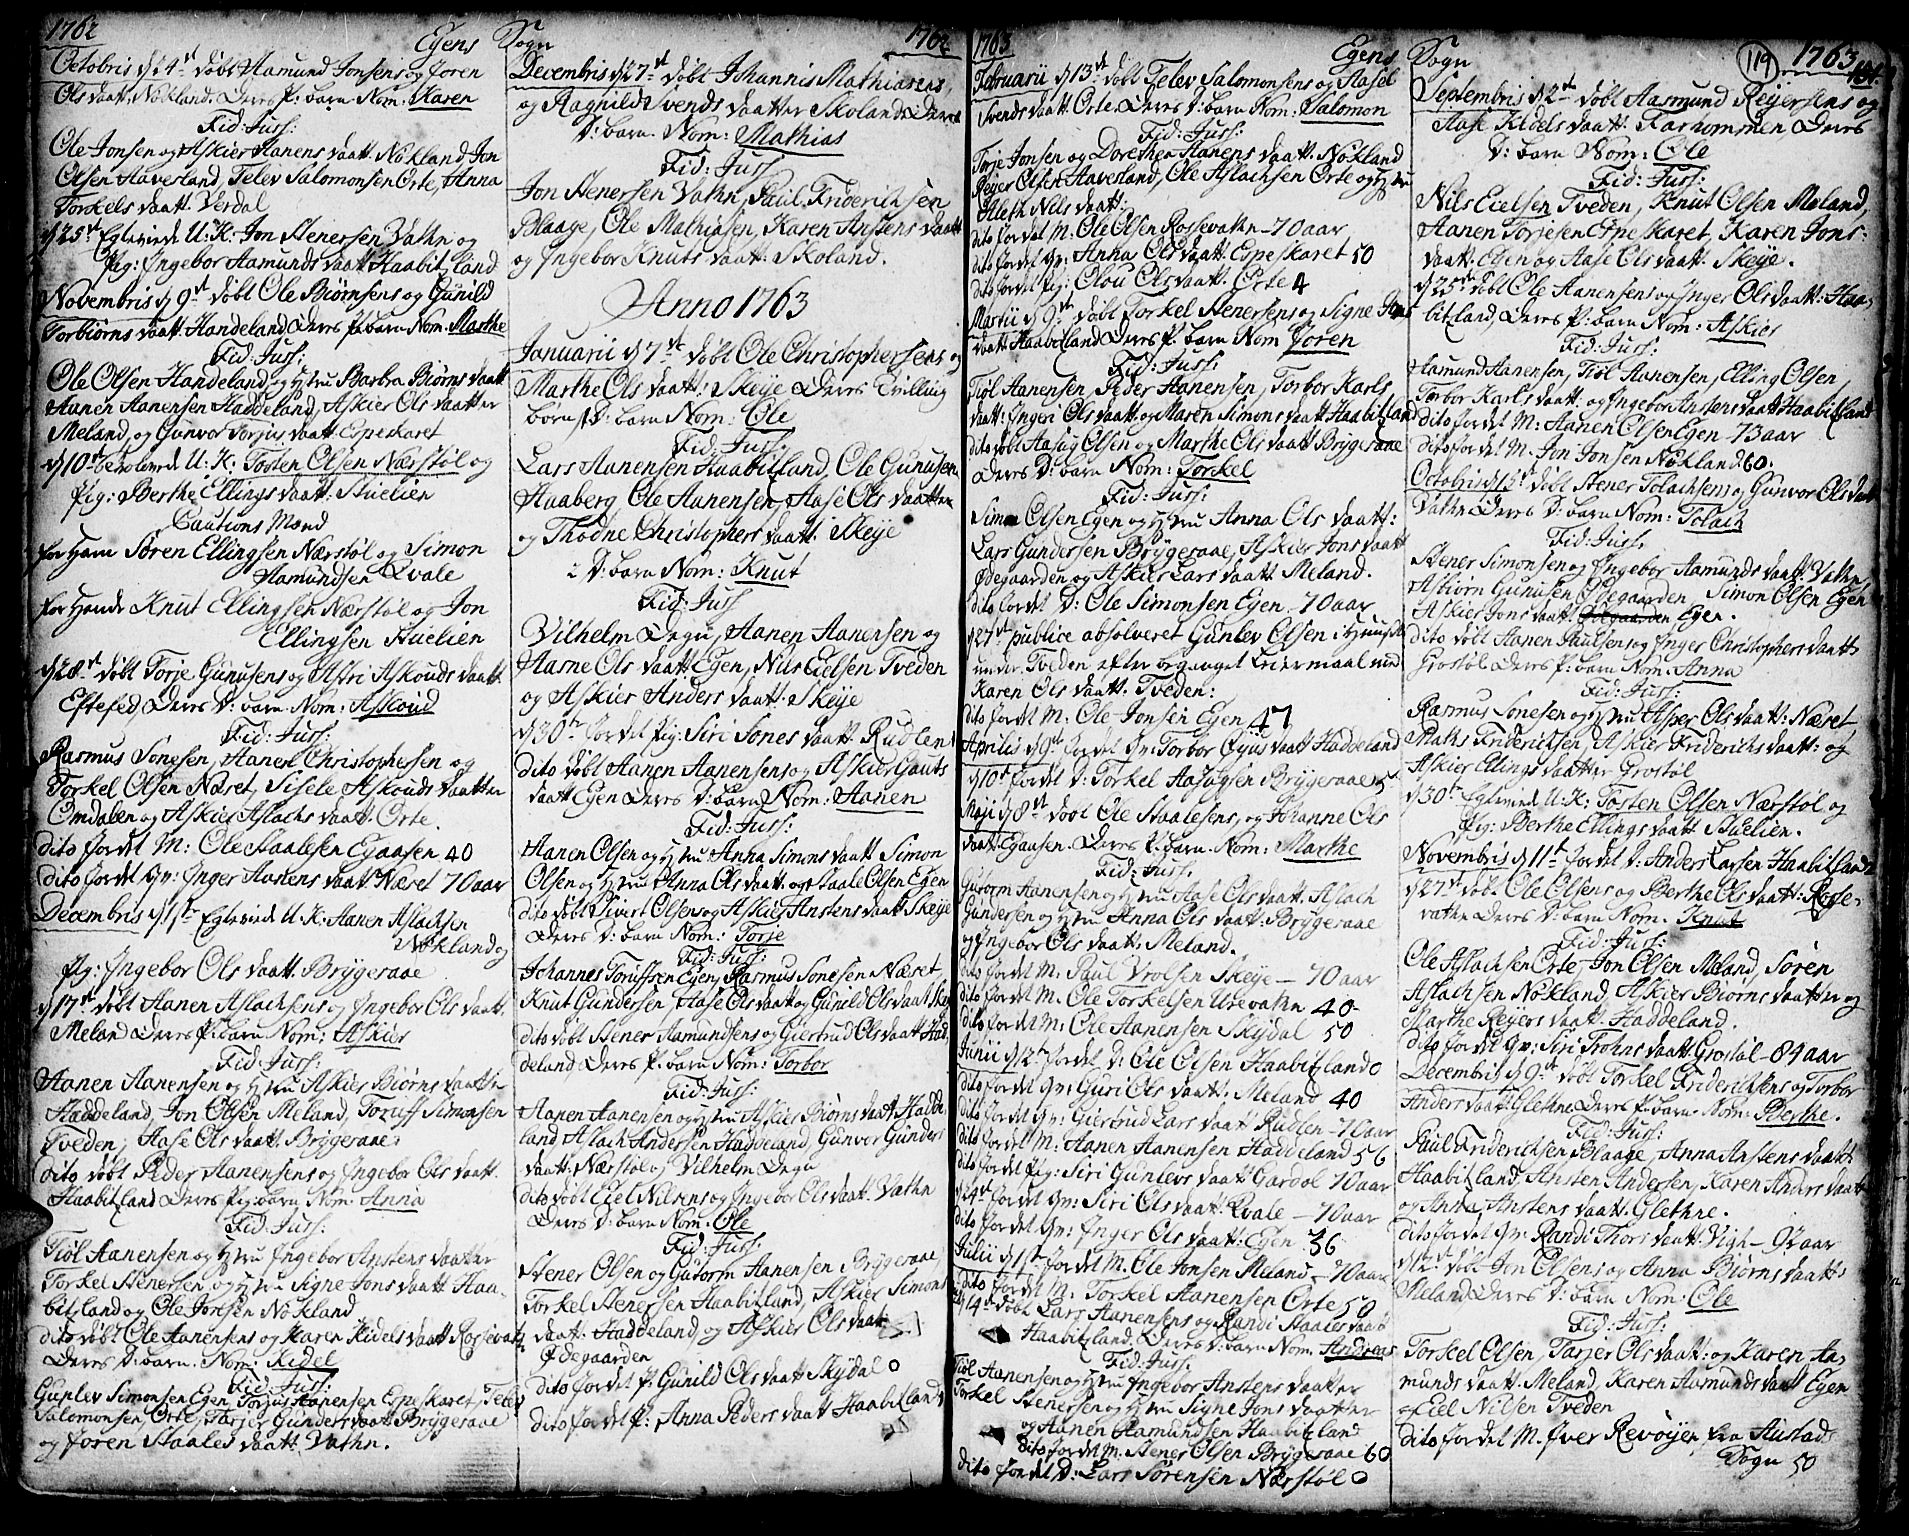 1762
Egens Sogn
1762
Octobris d 24de døbt Aamund Jonsens og Joren
Ols daatt: Nøkland Deres P: barn Nom: Karen
Fid: Juss:
Ole Jonsen og Askier Aanens daatt: Nøkland, Jon
Olsen Aaversland, Telev Salomonsen Orte, Anna
Torkels daatt: Verdal
d 25st Egteviede U: K: Jon Henersen Vathn og
Pig: Ingebor Aamunds daatt: Haabitzland
Novembris d 9st døbt Ole Biørnsens og Gunild
Torbiørns daatt: Handeland Deres P: barn Nom: Marthe
Fid: Juss:
Ole Olsen Handeland og Hstru Barbra Biørns daatt
Aanen Aanensen Haddeland, Askier Ols daatter
Meland, og Gunvor Torjus daatt: Espeskaret
d 10st trolovede U: K: Tosten Olsen Nærstøl og
Pig: Berthe Ellings daatt: Stuelien
Cautions Mænd
for Ham Søren Ellingsen Nærstøl og Simon
Aamundsen Qvale
for Hende Knut Ellingsen Nærstøl og Jon
Ellingsen Stuelien
d 28st døbt Torje Gunusens og Astri Askouds daatt
Eftefed, Deres D: barn Nom: Askoud
Fid: Juss:
Rasmus Sonesen, Aanen Christophersen og
Torkel Olsen Næset, Sisele Askouds daatter
Omdalen og Askier Aslachs daatt: Orte.
dito jordet M: Ole Staalesen Egaasen 40
dito jordet Qv: Inger Aanens daatt: Næset 70 aar
Decembris d 1st Egteviede U: K: Aanen Aslachsen
Nøkland og
Pig: Ingebor Ols daatt: Brygesaae
d 17st døbt Aanen Aslachsens og Ingebor Ols daatt:
Meland Deres P: barn Nom: Askier
Fid: Juss:
Aanen Aanensen og Hstru Askier Biørns daatter
Haddeland, Jon Olsen Meland, Toruff Simonsen
Tveden, Aase Ols daatt: Brygesaae
dito døbt Peder Aanensens og Ingebor Ols daatt:
Haabitzland Deres Pig: barn Nom: Anna
Fid: Juss:
Tiøl Aanensen og Hstru Ingebor Anstens daatter
Torkel Stenersen og Hstru Signe Jons daatt: Haa-
bitzland og Ole Jonsen Nøkland
dito døbt Ole Aanensens og Karen Kidels daatt Rossevatn
Deres D: barn: Nom: Kidel
Fid: Juss:
Gunlev Simonsen Egen Torjus Aanensen Espeskaret, Telev
Salomonsen, Orte, Tarjer Gunders daatt Brygesaae
og Joren Staales daatt: Vathn.
Decembris d 27st døbt Johannis Mathiasens,
og Ragnild Svends daatter Skoland Deres
D: barn Nom: Mathias
Fid: Juss
Jon Henersen Vathn, Paul Friderichsen
Blaage, Ole Mathiasen, Karen Anstens daatt
og Ingebor Knuts daatt: Skoland.
Anno 1763
Januarii d 7st døbt Ole Christophersens og
Marthe Ols daatt: Skeÿe Deres Tvilling
børn 1 D: barn Nom: Ole
Fid: Juss:
Lars Aanensen Haabitzland, Ole Gunusen
Haaberg, Ole Aanensen, Aase Ols daatter
og Thodne Christophers daatt: Skeÿe
2 D: barn Nom: Knut
Fid: Juss
Vilhelm Degn, Aanen Aanensen og
Aarne Ols daatt Egen, Nils Eielsen Tveden
og Askier Anders daatt: Skeÿe
d 30te jordet Pig: Siri Sones daatt Rudlen
dito døbt Aanen Aanensens og Askier Gauts
daatt Egen Deres D: barn Nom: Aanen
Fid: Juss:
Aanen Olsen og Hstru Anna Simons daatt: Simon
Olsen og Hstru Anna Ols daatt: og Staale Olsen Egen
dito døbt Sivert Olsens og Askier Anstens daatt Skeÿe
Deres D: barn Nom: Torje
Fid: Juss:
Johannes Toruffsen Egen, Rasmus Sonesen Næset,
Knut Gundersen, Aase Ols daatt og Gunild Ols daatt Skeÿ
dito døbt Stener Aamundsens og Giertrud Ols daatt Had-
deland, Deres P: barn Nom: Torbor
Fid: Juss:
Aanen Aanensen og Hstru Askier Biørns daatt Hadde-
land Aslach Andersen Haddeland, Gunvor Gunders
daatt: Nærstøl og Vilhelm Degn
dito døbt Eiel Nilsens og Ingebor Ols daatt: Vathn
Deres D: barn Nom: Ole
Fid: Juss:
Stener Olsen og Gutorm Aanensen Brygesaae
Torkel Stenersen Haabitzland, Askier Simons
daatt: Haddeland, og Askier Ols daatt
Ødegaarden
dito jordet P: Gunild Ols daatt Skydal 0
dito jordet P: Anna Peders daatt Haabitzland
1763
Egens Sogn
119
1763
Februarii d 13st døbt Telev Salomonsens og Aasel
Svends daatt Orte Deres D: barn Nom: Salomon
Fid: Juss:
Torje Jonsen og Dorethea Aanens daatt: Nøkland
Reyer Olsen Aaversland, Ole Aslachsen Orte og Hstru
Aleth Nils daatt:
dito jordet M: Ole Olsen Rossevathn - 70 aar
dito jordet Qv: Anna Ols daatt: Espeskaret 50
dito jordet Pig: Olou Ols daatt: Orte 4
Martii d 9st døbt Torkel Stenersens og Signe Jons
daatt Haabitzland Deres P: barn Nom Joren
Fid: Juss:
Tiøl Aanensen, Peder Aanensen, Torbor Karls
daatt: Ingeri Ols daatt og Maren Simons daatt Haabitzland
dito døbt Aasug Olsen og Marthe Ols daatt Brygesaae
Deres D: barn Nom: Torkel
Fid: Juss:
Simon Olsen Egen og Hstru Anna Ols daatt:
Lars Gundersen Brygesaae, Askier Jons daatt
Ødegaarden og Askier Lars daatt Meland.
dito jordet D: Ole Simonsen Egen - 70 aar
d 27st publice absolveret Gunlev Olsen i Huuset
under Tveden efter begaaet Leiermaal med
Karen Ols daatt: Tveden:
dito jordet M: Ole Jonsen Egen 47
Aprilis d 9st jordet Qv: Torbor Eyus daatt Haddeland
d 10st jordet D: Torkel Aasugsen Brygesaae
Maji d 8st døbt Ole Staalesens, og Johanne Ols
daatt Egaasen. Deres P: barn Nom: Marthe
Fid: Juss:
Gutorm Aanensen og Hstru Aase Ols daatt: Aslach
Gundersen og Hstru Anna Ols daatt: Brygesaae
og Ingebor Ols daatt: Meland.
dito jordet M: Paul Vrolsen Skeÿe - 70 aar
dito jordet M: Ole Torkelsen Utevathn 40-
dito jordet M: Ole Aanensen Skydal 50
Junii d 12t jordet D: Ole Olsen Haabitzland 0
dito jordet Qv: Guri Ols daatt: Meland 40
dito jordet Qv: Giertrud Lars daatt Rudlen - 70 aar
dito jordet M: Aanen Aanensen Haddeland 56
dito jordet Pig: Siri Gunlevs daatt Gardøl 70 aar
d 24st jordet Qv: Siri Ols daatt: Qvale - 70 aar
dito jordet Qv: Inger Ols daatt: Egen 36
Julii d 1st jordet M: Ole Jonsen Meland - 70 aar
dito jordet M: Torkel Aanensen Orte 50
d 14de døbt Lars Aanensens og Randi Staales daatt
Haabitzland. Deres D: barn Nom: Andreas
Fid: Juss:
Tiøl Aanensen og Hstru Ingebor Anstens daatter
Torkel Stenersen og Hstru Signe Jons daatter
og Aanen Aamundsen Haabitzland
dito jordet M: Stener Olsen Brygesaae 60
dito jordet D: Lars Sørensen Nærstøl 0
Septembris d 2st døbt Aasmund Reyersens og
Aase Kidels daatt: Farkommen Deres
D: barn Nom: Ole
Fid: Juss:
Nils Eielsen Tveden, Knut Olsen Meland,
Aanen Torjesen Espeskaret, Karen Jons:
daatt: Egen og Aase Ols daatt: Skeÿe.
d 25de døbt Ole Aanensens og Inger Ols daatt: Haa-
bitzland, Deres P: barn Nom: Askier
Fid: Juss:
Aamund Aanensen, Tiøl Aanensen, Elling Olsen,
Torbor Karls daatt: og Ingebor Anstens daatt Haabitzland
dito jordet M: Aanen Olsen Egen 73 aar
dito jordet M: Jon Jonsen Nøkland 60.
Octobris d 15de døbt Stener Tolachsens og Gunvor Ols daatt
Vathn Deres D: barn Nom: Tolach
Fid: Juss.
Stener Simonsen og Ingebor Aamunds daatt: Vathn,
Asbiørn Gunusen Ødegaarden, Simon Olsen Egen
Askier Jons daatt: Ødegaarden Egen.
dito døbt Aanen Paulsens og Inger Christophers daatt
Grostøl Deres P: barn Nom: Anna
Fid: Juss:
Rasmus Sonesen og Hstru Asper Ols daatt: Næset
Mathis Friderichsen, Askier Friderichs daatt: og
Askier Ellings daatter Grostøl
d 30te Egteviet U: K: Tosten Olsen Nærstøl og
Pig: Berthe Ellings daatt Stuelien.
Novembris d 11st jordet D: Anders Larsen Haabitzland
d 27st døbt Ole Olsens og Berthe Ols daatt: Rosse-
vathn Deres D: barn Nom: Knut
Fid: Juss:
Ole Aslachsen Orte, Jon Olsen Meland, Søren
Aslachsen Nøkland, Askier Biørns daatter og
Marthe Reyers daatt: Haddeland.
dito jordet Qv: Siri Trohns daatt: Grostøl - 84 aar
Decembris d 9st døbt Torkel Friderichsens og Torbor
Anders daatt: Glethne Deres P: barn Nom: Berthe.
Fid: Juss:
Paul Friderichsen Blaage, Anna Anstens daatt
Haabitzland, Ansten Andersen, Karen Anders daatt
og Anna Anstens daatt: Glethne.
dito jordet Qv: Randi Thors daatt: Vigh - 92 aar
d 12st døbt Jon Olsens og Anna Biørns daatt:
Meland Deres D: barn Nom: Ole
Fid: Juss:
Torkel Olsen, Tarjer Ols daatt: og Karen Aa-
munds daatt: Meland, Karen Aamunds daatt Egen
og Eiel Nilsen Tveden
dito jordet M. Iver Revøyen fra Austads
Sogn 50